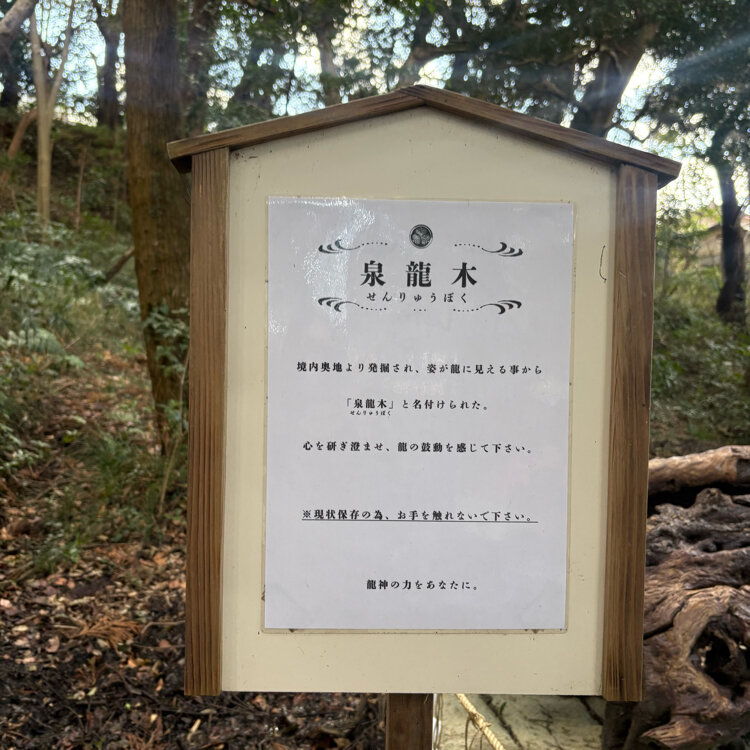 泉龍木
せんりゅうぼく
境内奥地より発掘され、姿が龍に見える事から
「泉龍木」と名付けられた。
せんりゅうぼく
心を研ぎ澄ませ、龍の鼓動を感じて下さい。
※現状保存の為、お手を触れないで下さい。
龍神の力をあなたに。